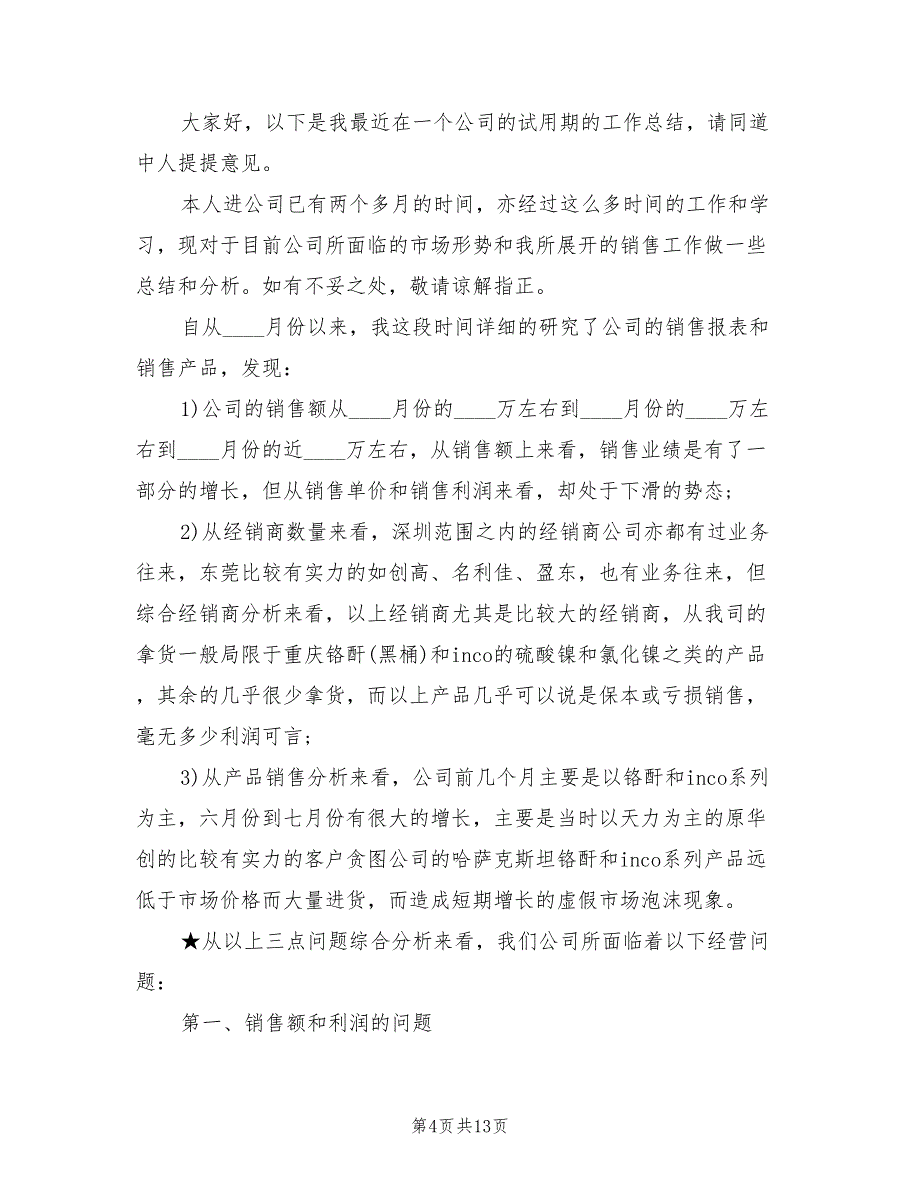 大家好，以下是我最近在一个公司的试用期的工作总结，请同道
中人提提意见。
本人进公司已有两个多月的时间，亦经过这么多时间的工作和学
习，现对于目前公司所面临的市场形势和我所展开的销售工作做一些
总结和分析。如有不妥之处，敬请谅解指正。
自从____月份以来，我这段时间详细的研究了公司的销售报表和
销售产品，发现：
1)公司的销售额从____月份的____万左右到____月份的____万左
右到____月份的近____万左右，从销售额上来看，销售业绩是有了一
部分的增长，但从销售单价和销售利润来看，却处于下滑的势态;
2)从经销商数量来看，深圳范围之内的经销商公司亦都有过业务
往来，东莞比较有实力的如创高、名利佳、盈东，也有业务往来，但
综合经销商分析来看，以上经销商尤其是比较大的经销商，从我司的
拿货一般局限于重庆铬酐(黑桶)和inco的硫酸镍和氯化镍之类的产品
，其余的几乎很少拿货，而以上产品几乎可以说是保本或亏损销售，
毫无多少利润可言;
3)从产品销售分析来看，公司前几个月主要是以铬酐和inco系列
为主，六月份到七月份有很大的增长，主要是当时以天力为主的原华
创的比较有实力的客户贪图公司的哈萨克斯坦铬酐和inco系列产品远
低于市场价格而大量进货，而造成短期增长的虚假市场泡沫现象。
★从以上三点问题综合分析来看，我们公司所面临着以下经营问
题：
第一、销售额和利润的问题
第4页共13页